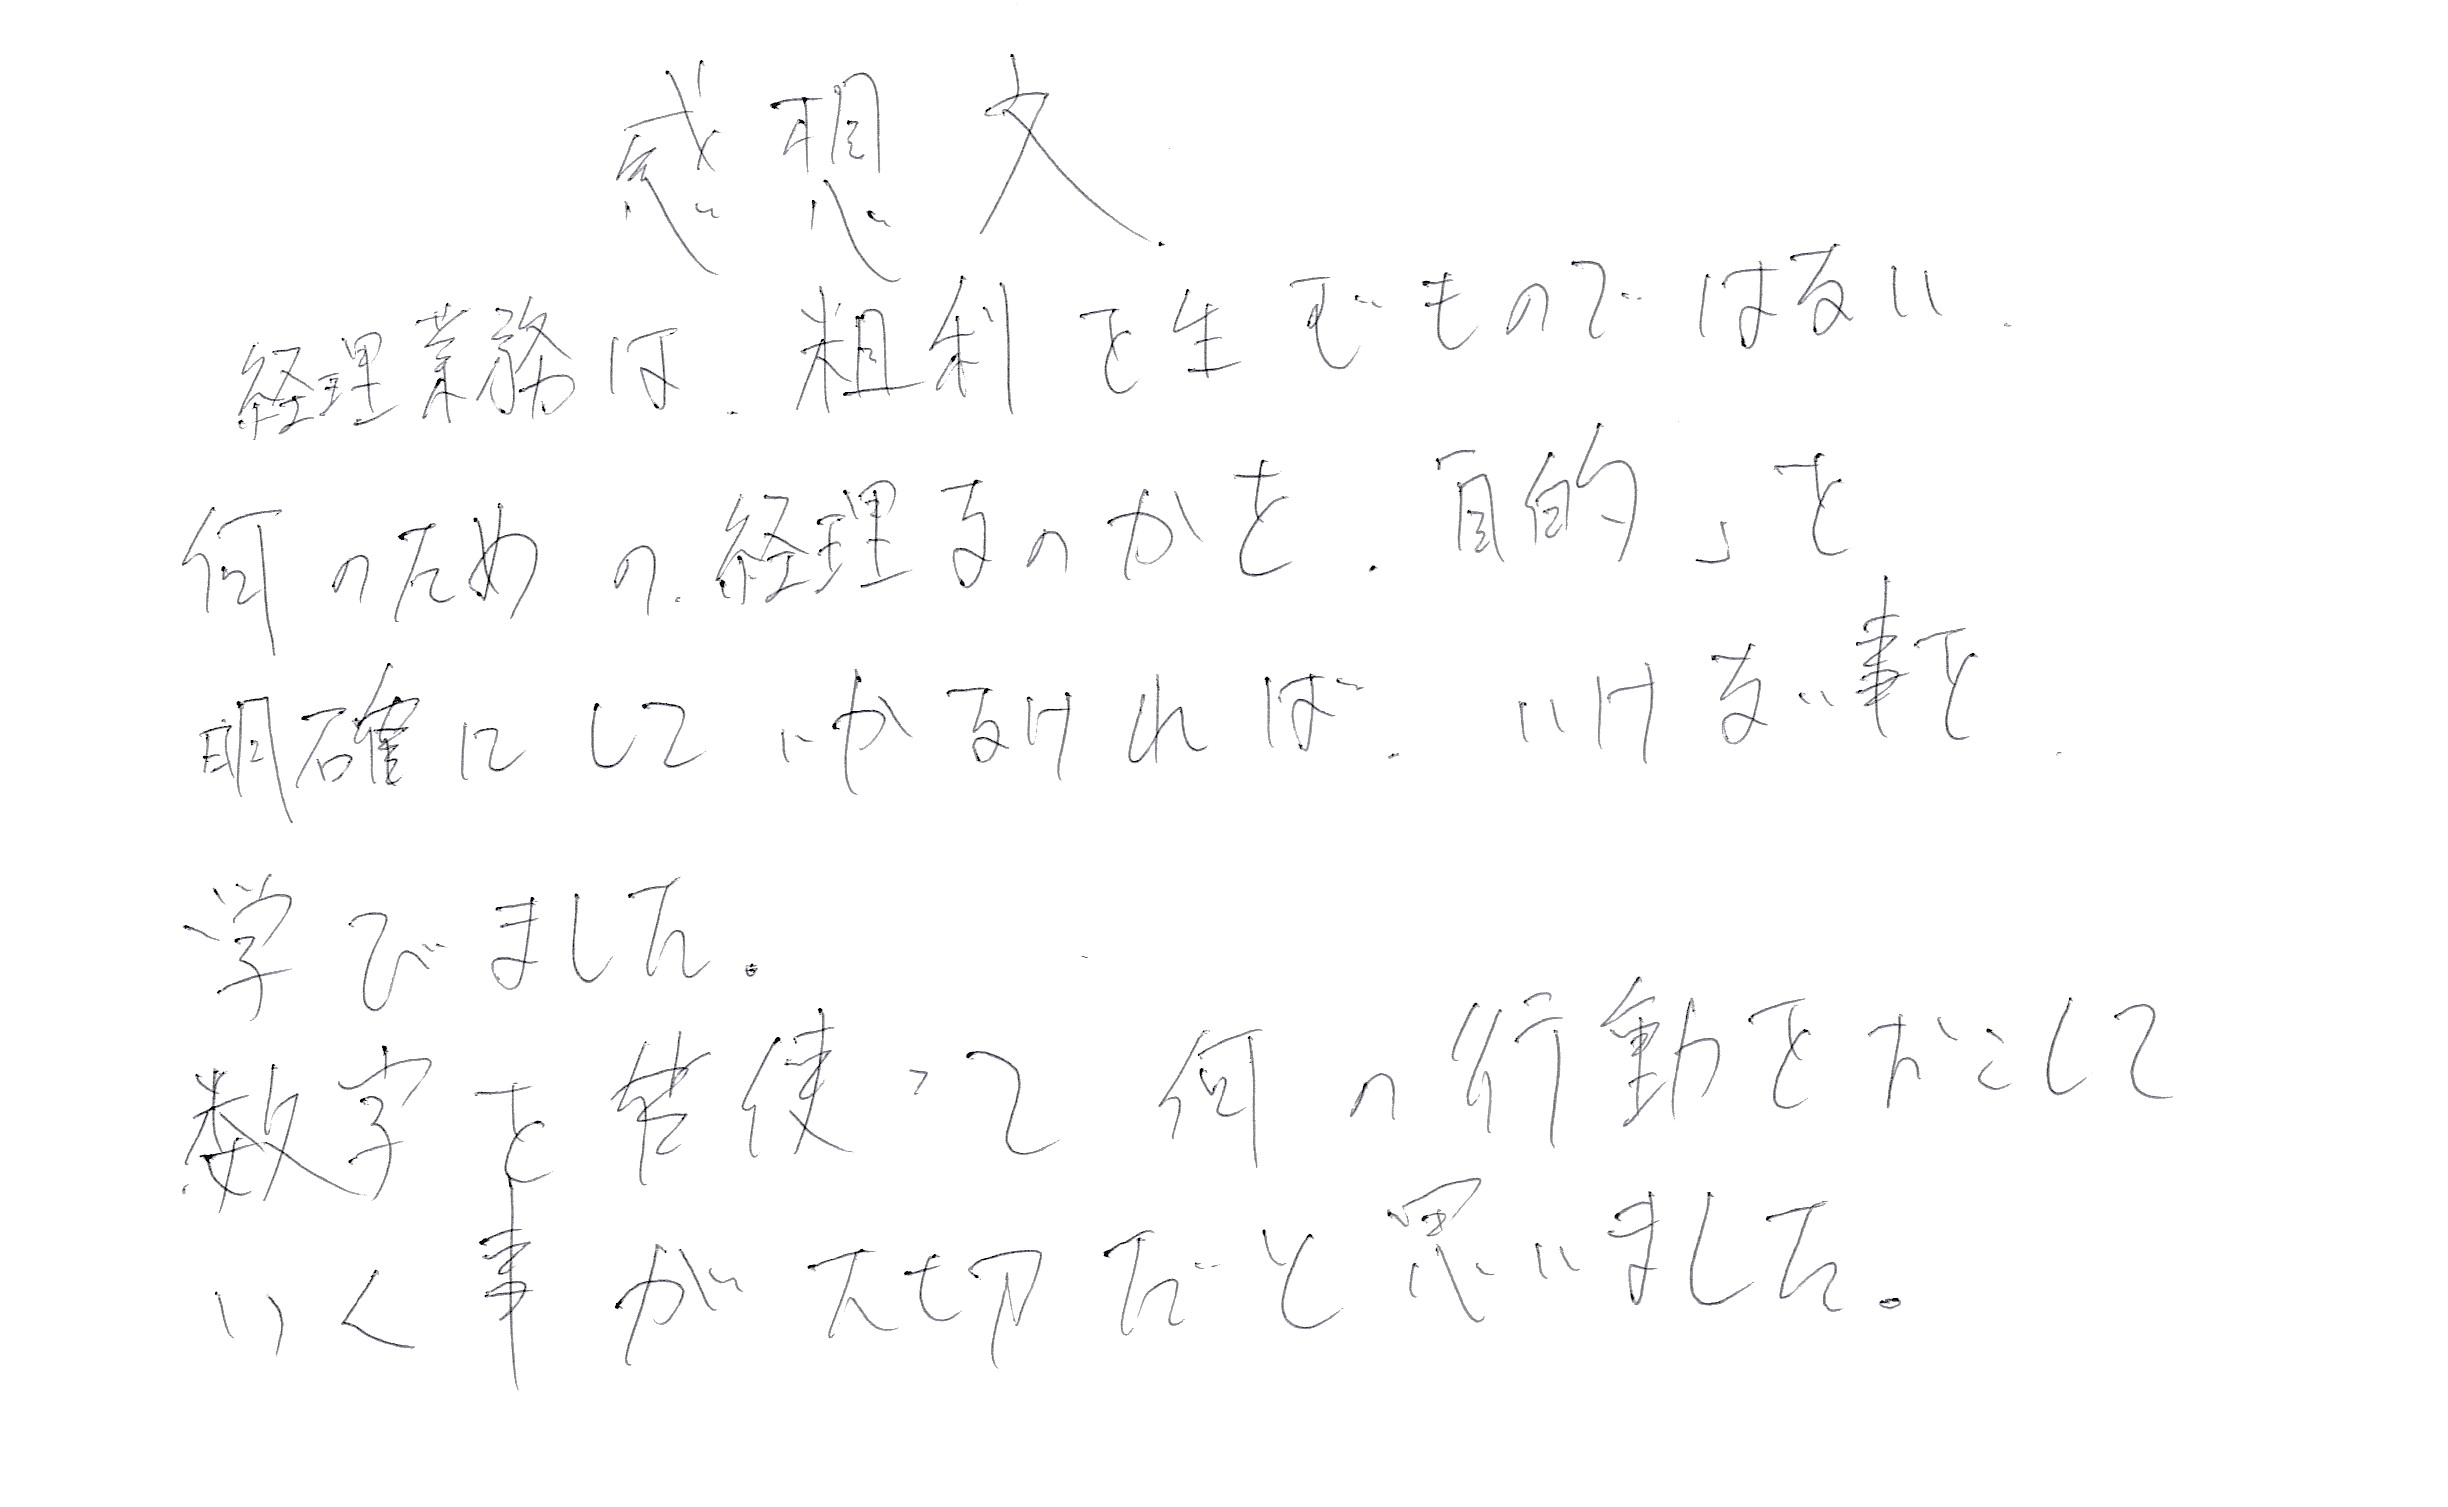 感想文
経理業務は、粗利を生むものではない、
何のための、経理なのかを、「目的」を
明確にしていかなければ、いけない事を、
学びました。
数字を使って何の行動をおこして
いく事が大切だと思いました。